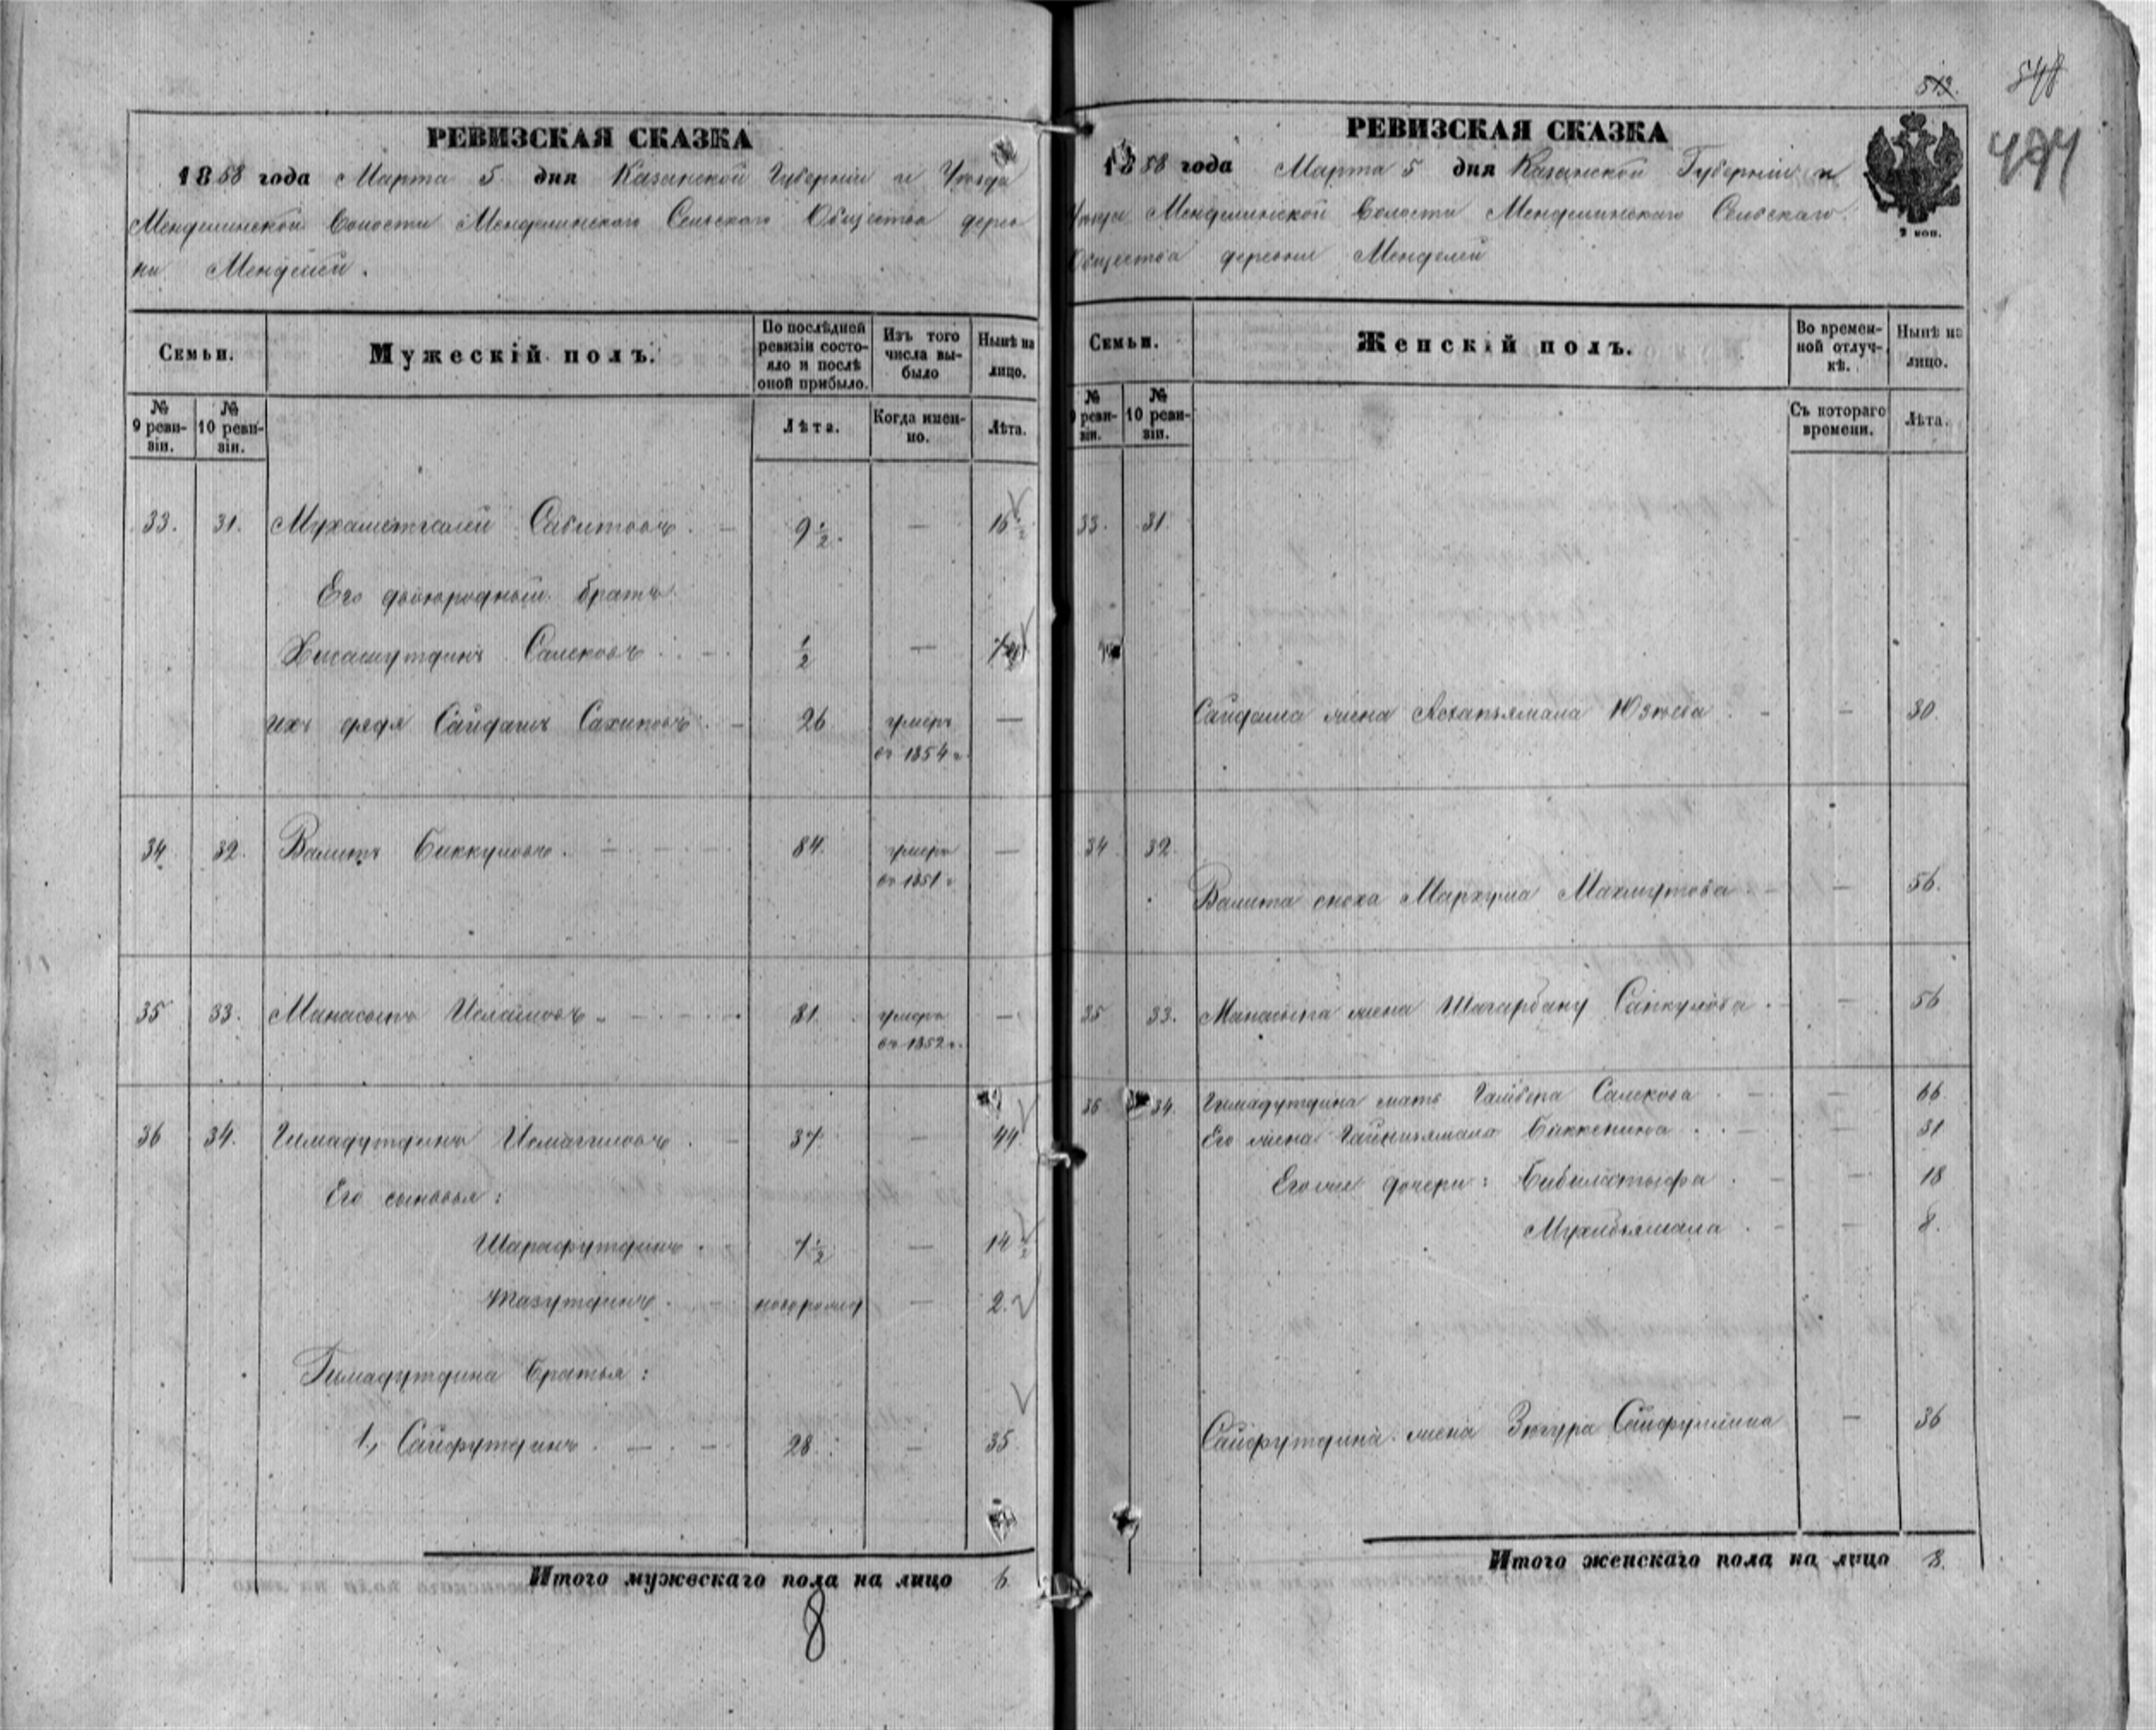 513.
548
494
РЕВИЗСКАЯ СКАЗКА
1858 года Марта 5 дня Казанской Губерніи и Уѣзда
Менделинской Волости Менделинскаго Сельскаго Общества дерев
ни Мендели.
Семьи.
Мужескій полъ.
По послѣдней ревизіи состояло и послѣ оной прибыло.
Изъ того числа выбыло
Нынѣ на лицо.
№ 9 ревизіи.
№ 10 ревизіи.
Лѣта.
Когда именно.
Лѣта.
33. 31. Мухаметгалей Сабитовъ . — 9½. — 16½
Его двоюродный братъ
Хисамутдинъ Салековъ . . — ½ —
ихъ дядя Сайдашъ Сахиповъ . — 26 умеръ —
въ 1854 г.
34 32. Валитъ Биккуловъ . — 84. умеръ —
въ 1851 г.
35 33. Манасыпъ Исламовъ . — 81. умеръ —
въ 1852 г.
36 34. Гимадутдинъ Исмагиловъ . — 37 — 44
Его сыновья:
Шарафутдинъ . 7½ — 14½
Тазутдинъ . — новорожд — 2.
Гимадутдина братья:
1., Сайфутдинъ . — . — 28. — 35
Итого мужескаго пола на лицо 6.
8
РЕВИЗСКАЯ СКАЗКА
1858 года Марта 5 дня Казанской Губерніи и
Уѣзда Менделинской Волости Менделинскаго Сельскаго
Общества деревни Менделей
2 коп.
Семьи.
Женскій полъ.
Во временной отлучкѣ.
Нынѣ на лицо.
№ 9 ревизіи.
№ 10 ревизіи.
Съ котораго времени.
Лѣта.
33. 31.
Сайдаша жена Асхапъямала Юзѣева . — — 30.
34 32.
Валита сноха Мархума Махмутова . — — 56.
35 33. Манасыпа жена Шагарбану Сапкулова . — — 56
36 34. Гимадутдина мать Салекова . — — 66.
Его жена Биккенина . . — — 31
Его же дочери: . — — 18
Мухибзямала . — — 8.
Сайфутдина жена Зюгура Сайфуллина — 36
Итого женскаго пола на лицо 8.